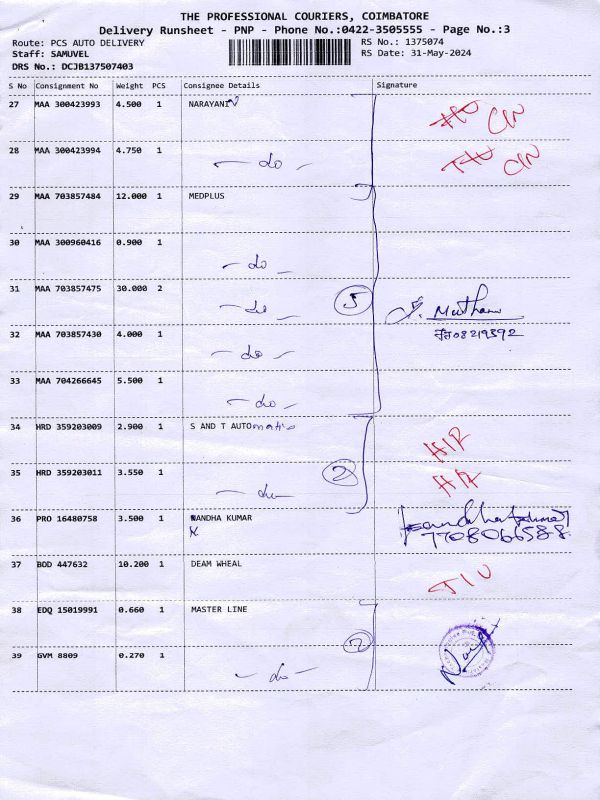 THE PROFESSIONAL COURIERS, COIMBATORE
Delivery Runsheet - PNP - Phone No.:0422-3505555 - Page No.:3
Route: PCS AUTO DELIVERY
RS No.: 1375074
Staff: SAMUVEL
RS Date: 31-May-2024
DRS No.: DCJB137507403
S No Consignment No Weight PCS Consignee Details Signature
27 MAA 300423993 4.500 1 NARAYANIN
28 MAA 300423994 4.750 1 - do -
29 MAA 703857484 12.000 1 MEDPLUS
30 MAA 300960416 0.900 1 - do -
31 MAA 703857475 30.000 2 - do - 5
32 MAA 703857430 4.000 1 - do -
33 MAA 704266645 5.500 1 - do -
34 HRD 359203009 2.900 1 S AND T AUTOmatic
35 HRD 359203011 3.550 1 - do - 2
36 PRO 16480758 3.500 1 NANDHA KUMAR
K
7708066588
37 BOD 447632 10.200 1 DEAM WHEAL
38 EDQ 15019991 0.660 1 MASTER LINE
39 GVM 8809 0.270 1 - do - 2